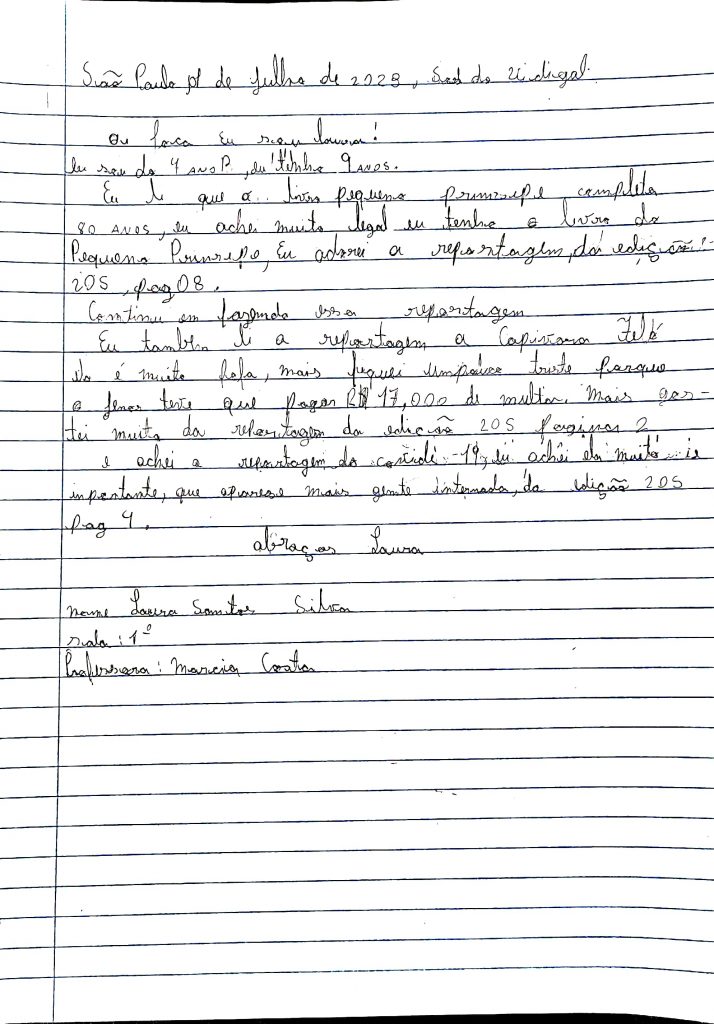 São Paulo 01 de julho de 2023, Sad do Vidigal
Oi Joca Eu sou laura!
Eu sou do 4 ANO P. ,eu tenho 9 ANOS.
Eu li que o livro pequeno prinsipe completa
80 ANOS, eu achei muito legal eu tenho o livro do
Pequeno Prinsipe, Eu adorei a reportagem, da edição:
205 ,pag 08.
Continu em fazendo essa reportagem
Eu tambên li a reportagem a Capivara Filó
ela é muito fofa, mais fiquei umpouco triste Porque
o Jenas teve que pagar R$ 17,000 de multa. Mais gos-
tei muito da reportagem da edição 205 paginas 2
e achei a reportagem do covidi-19, eu achei ela muito
inportante, que aparese mais gente internada, da edição 205
Pag 4.
abraços Laura
nome Laura Santos Silva
sala: 1º
Professora: Marcia Costa